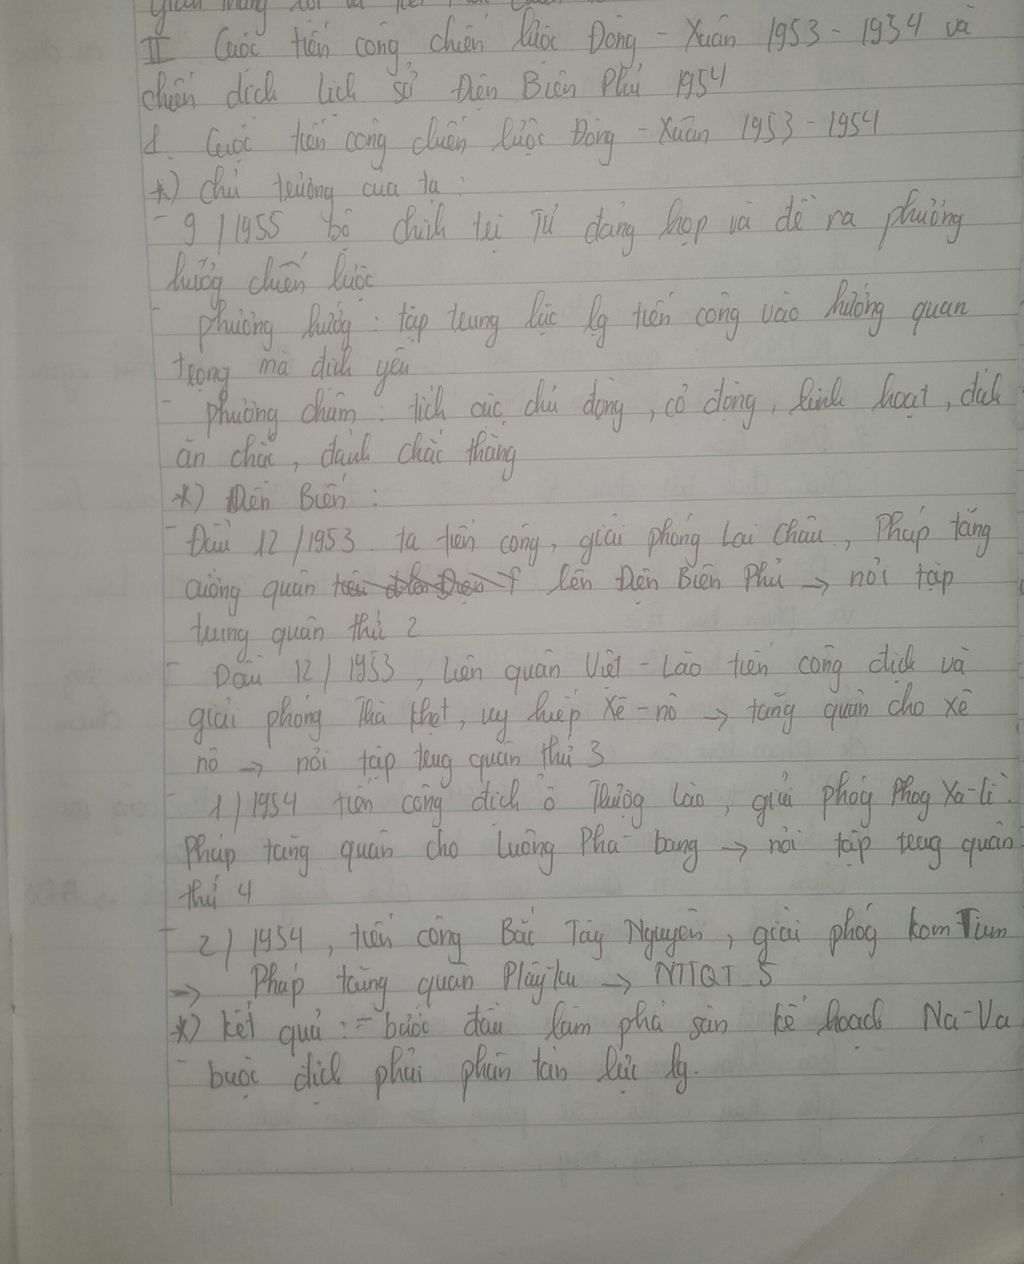 II Cuộc tiến công chiến lược Đông - Xuân 1953 - 1954 và
chiến dịch lịch sử Điện Biên Phủ 1954
1. Cuộc tiến công chiến lược Đông - Xuân 1953 - 1954
*) chủ trương của ta :
- 9 / 1955 bộ chính trị TƯ đảng họp và đề ra phương
hướng chiến lược
- phương hướng : tập trung lực lg tiến công vào hướng quan
trọng mà địch yếu
- phương châm : tích cực, chủ động, cơ động, linh hoạt, đánh
ăn chắc, đánh chắc thắng
*) Diễn Biến :
- Đầu 12 / 1953 ta tiến công, giải phóng Lai Châu, Pháp tăng
cường quân lên Điện Biên Phủ → nơi tập
trung quân thứ 2
- Đầu 12 / 1953, Liên quân Việt - Lào tiến công địch và
giải phóng Thà khẹt, uy hiếp Xê - nô → tăng quân cho xê
nô → nơi tập trug quân thứ 3
- 1 / 1954 tiến công địch ở Thượg Lào, giải phóg Phog Xa-lì.
Pháp tăng quân cho Luông Pha - bang → nơi tập trug quân
thứ 4
- 2 / 1954, tiến công Bắc Tây Nguyên, giải phóg kom Tum
→ Pháp tăng quân Plâyku → NTTQT 5
*) kết quả : - bước đầu làm phá sản kế hoạch Na-Va
- buộc địch phải phân tán lực lg.